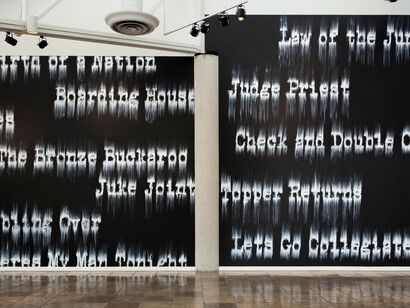 irth of a Nation
Boarding House
s
he Bronze Buckaroo
Juke Joint
Over
My Man Tonight
Law of the Ju
Judge Priest
Check and Double C
Topper Returns
Lets Go Collegiate